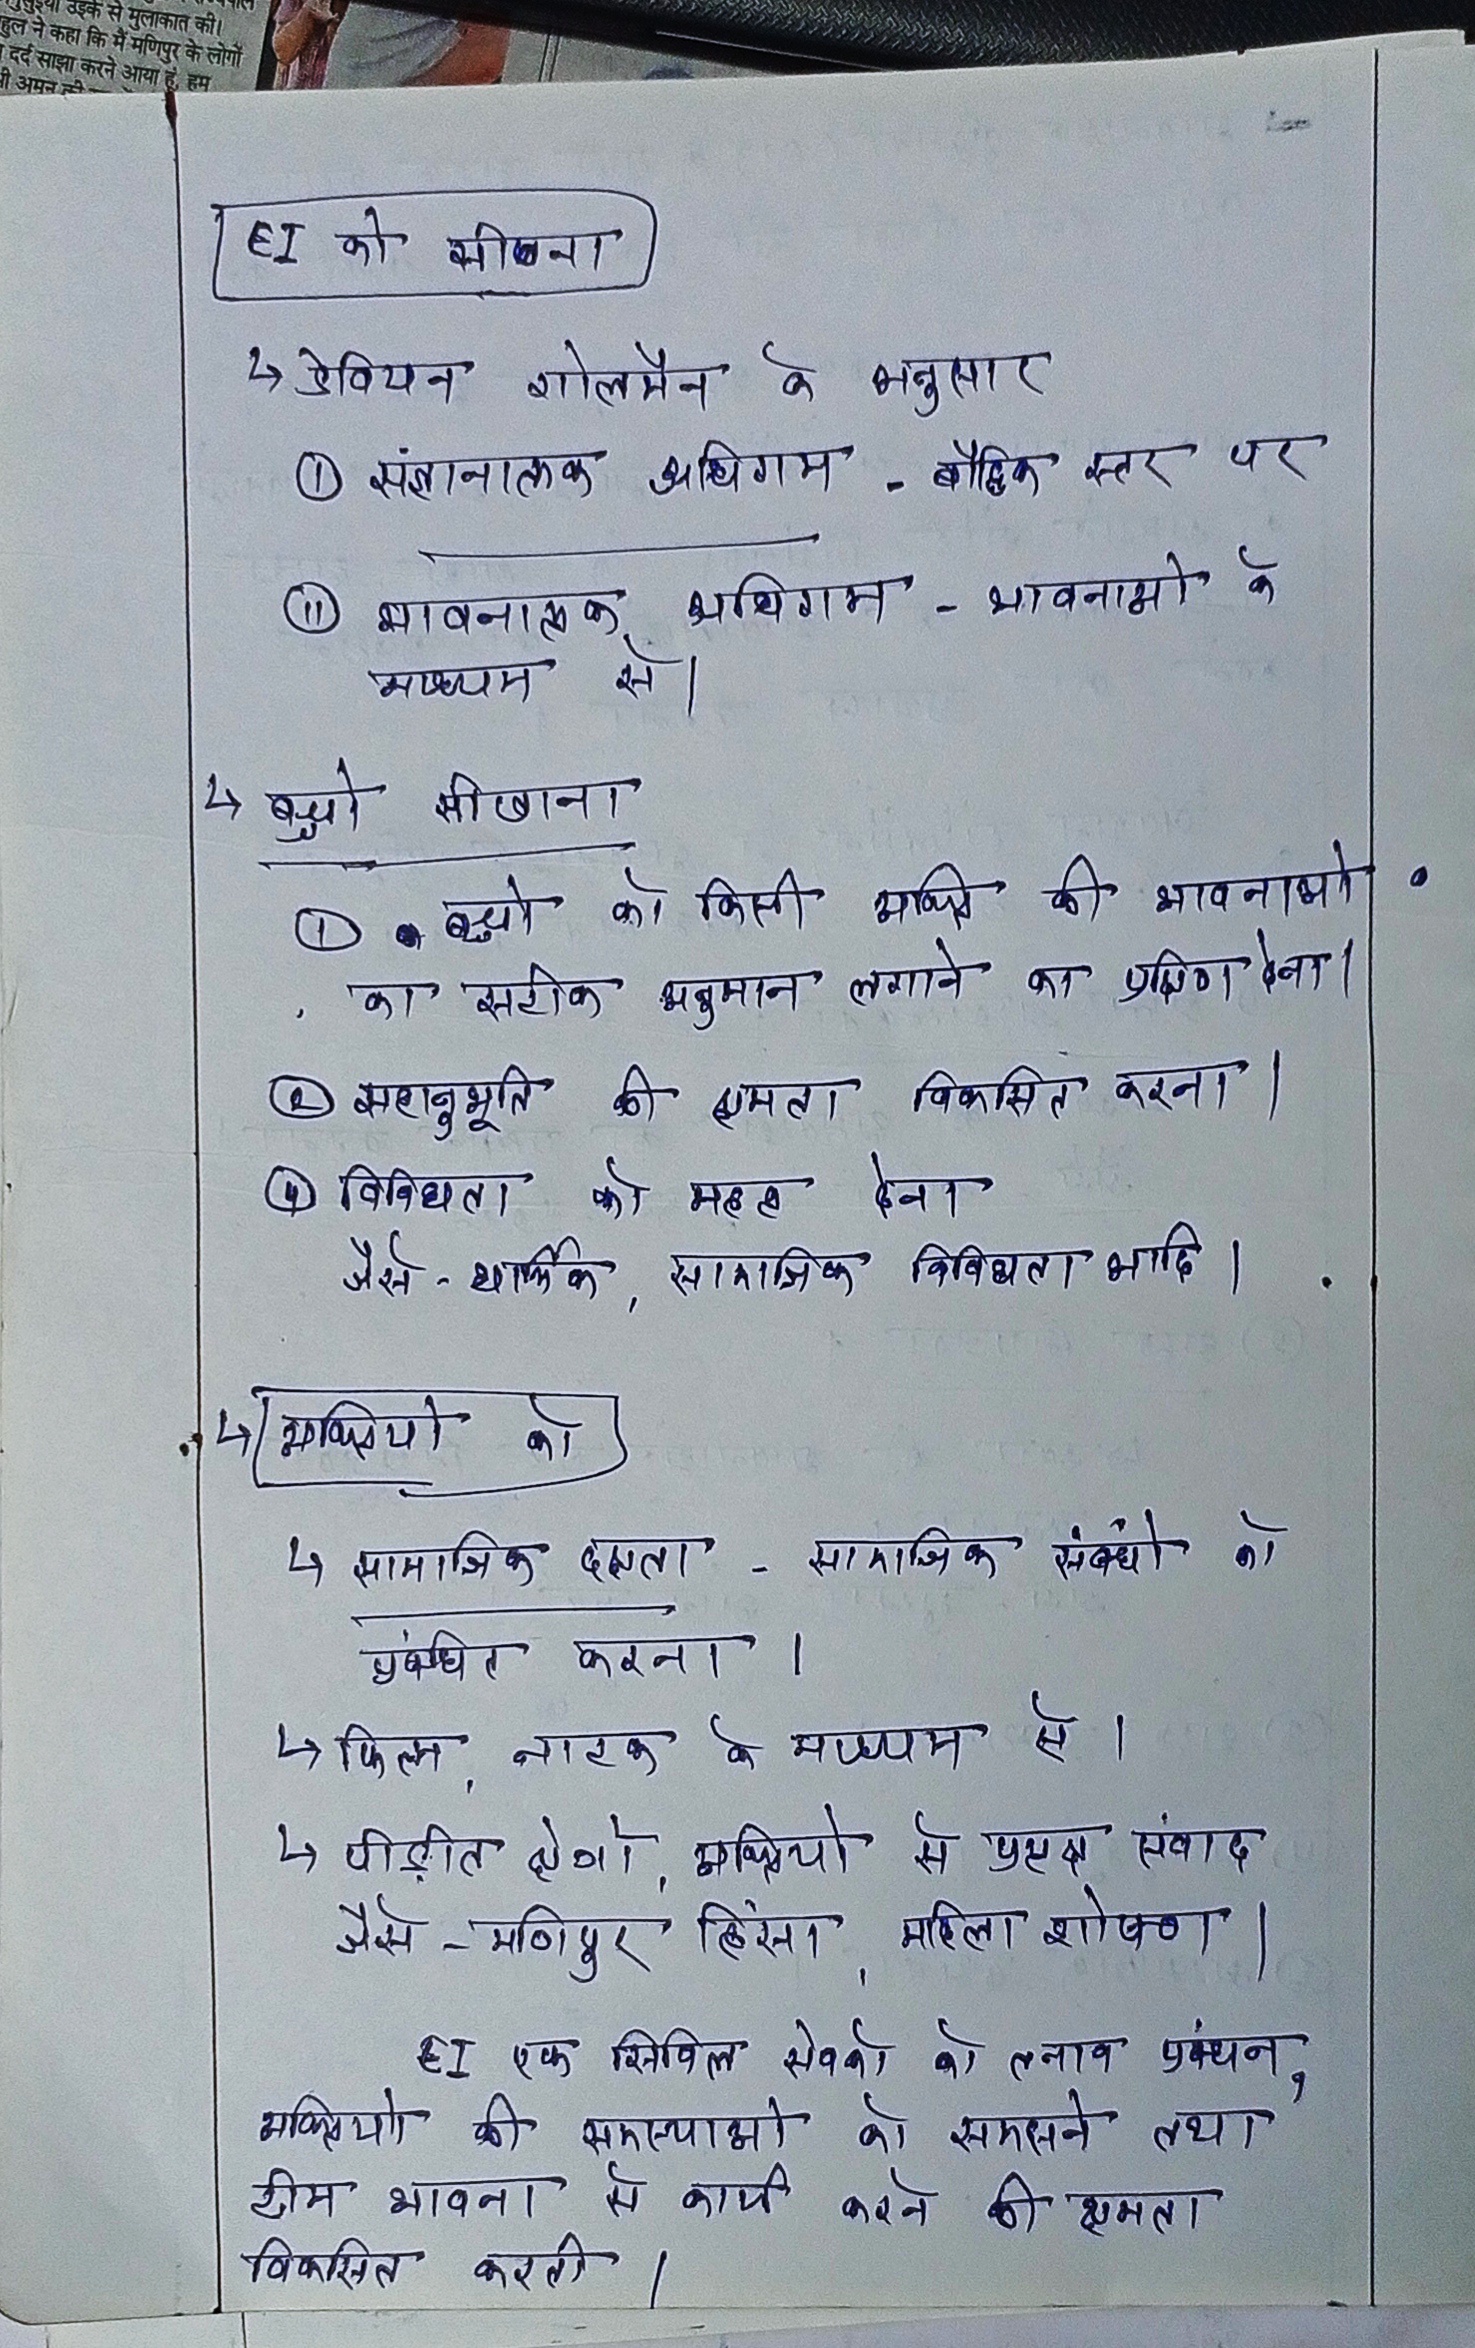 नुसुइया उइके से मुलाकात की।
हुल ने कहा कि मैं मणिपुर के लोगों
दर्द साझा करने आया हूं, हम
EI को सीखना
↳ डेवियन गोलमैन के अनुसार
① संज्ञानात्मक अधिगम - बौद्धिक स्तर पर
⑪ भावनात्मक अधिगम - भावनाओ के
माध्यम से।
↳ बच्चो सीखाना
① बच्चो को किसी व्यक्ति की भावनाओ
का सटीक अनुमान लगाने का देना।
② सहानुभूति की क्षमता विकसित करना।
④ विविधता को महत्व देना
जैसे - धार्मिक, सामाजिक विविधता आदि।
↳ व्यक्तियो को
↳ सामाजिक दक्षता - सामाजिक संबंधो को
प्रबंधित करना।
↳ फिल्म, नाटक के माध्यम से।
↳ पीड़ीत लोगो, व्यक्तियो से प्रत्यक्ष संवाद
जैसे - मणिपुर हिंसा, महिला शोषण।
EI एक सिविल सेवको को तनाव प्रबंधन,
व्यक्तियो की समस्याओ को समझने तथा
टीम भावना से कार्य करने की क्षमता
विकसित करती।